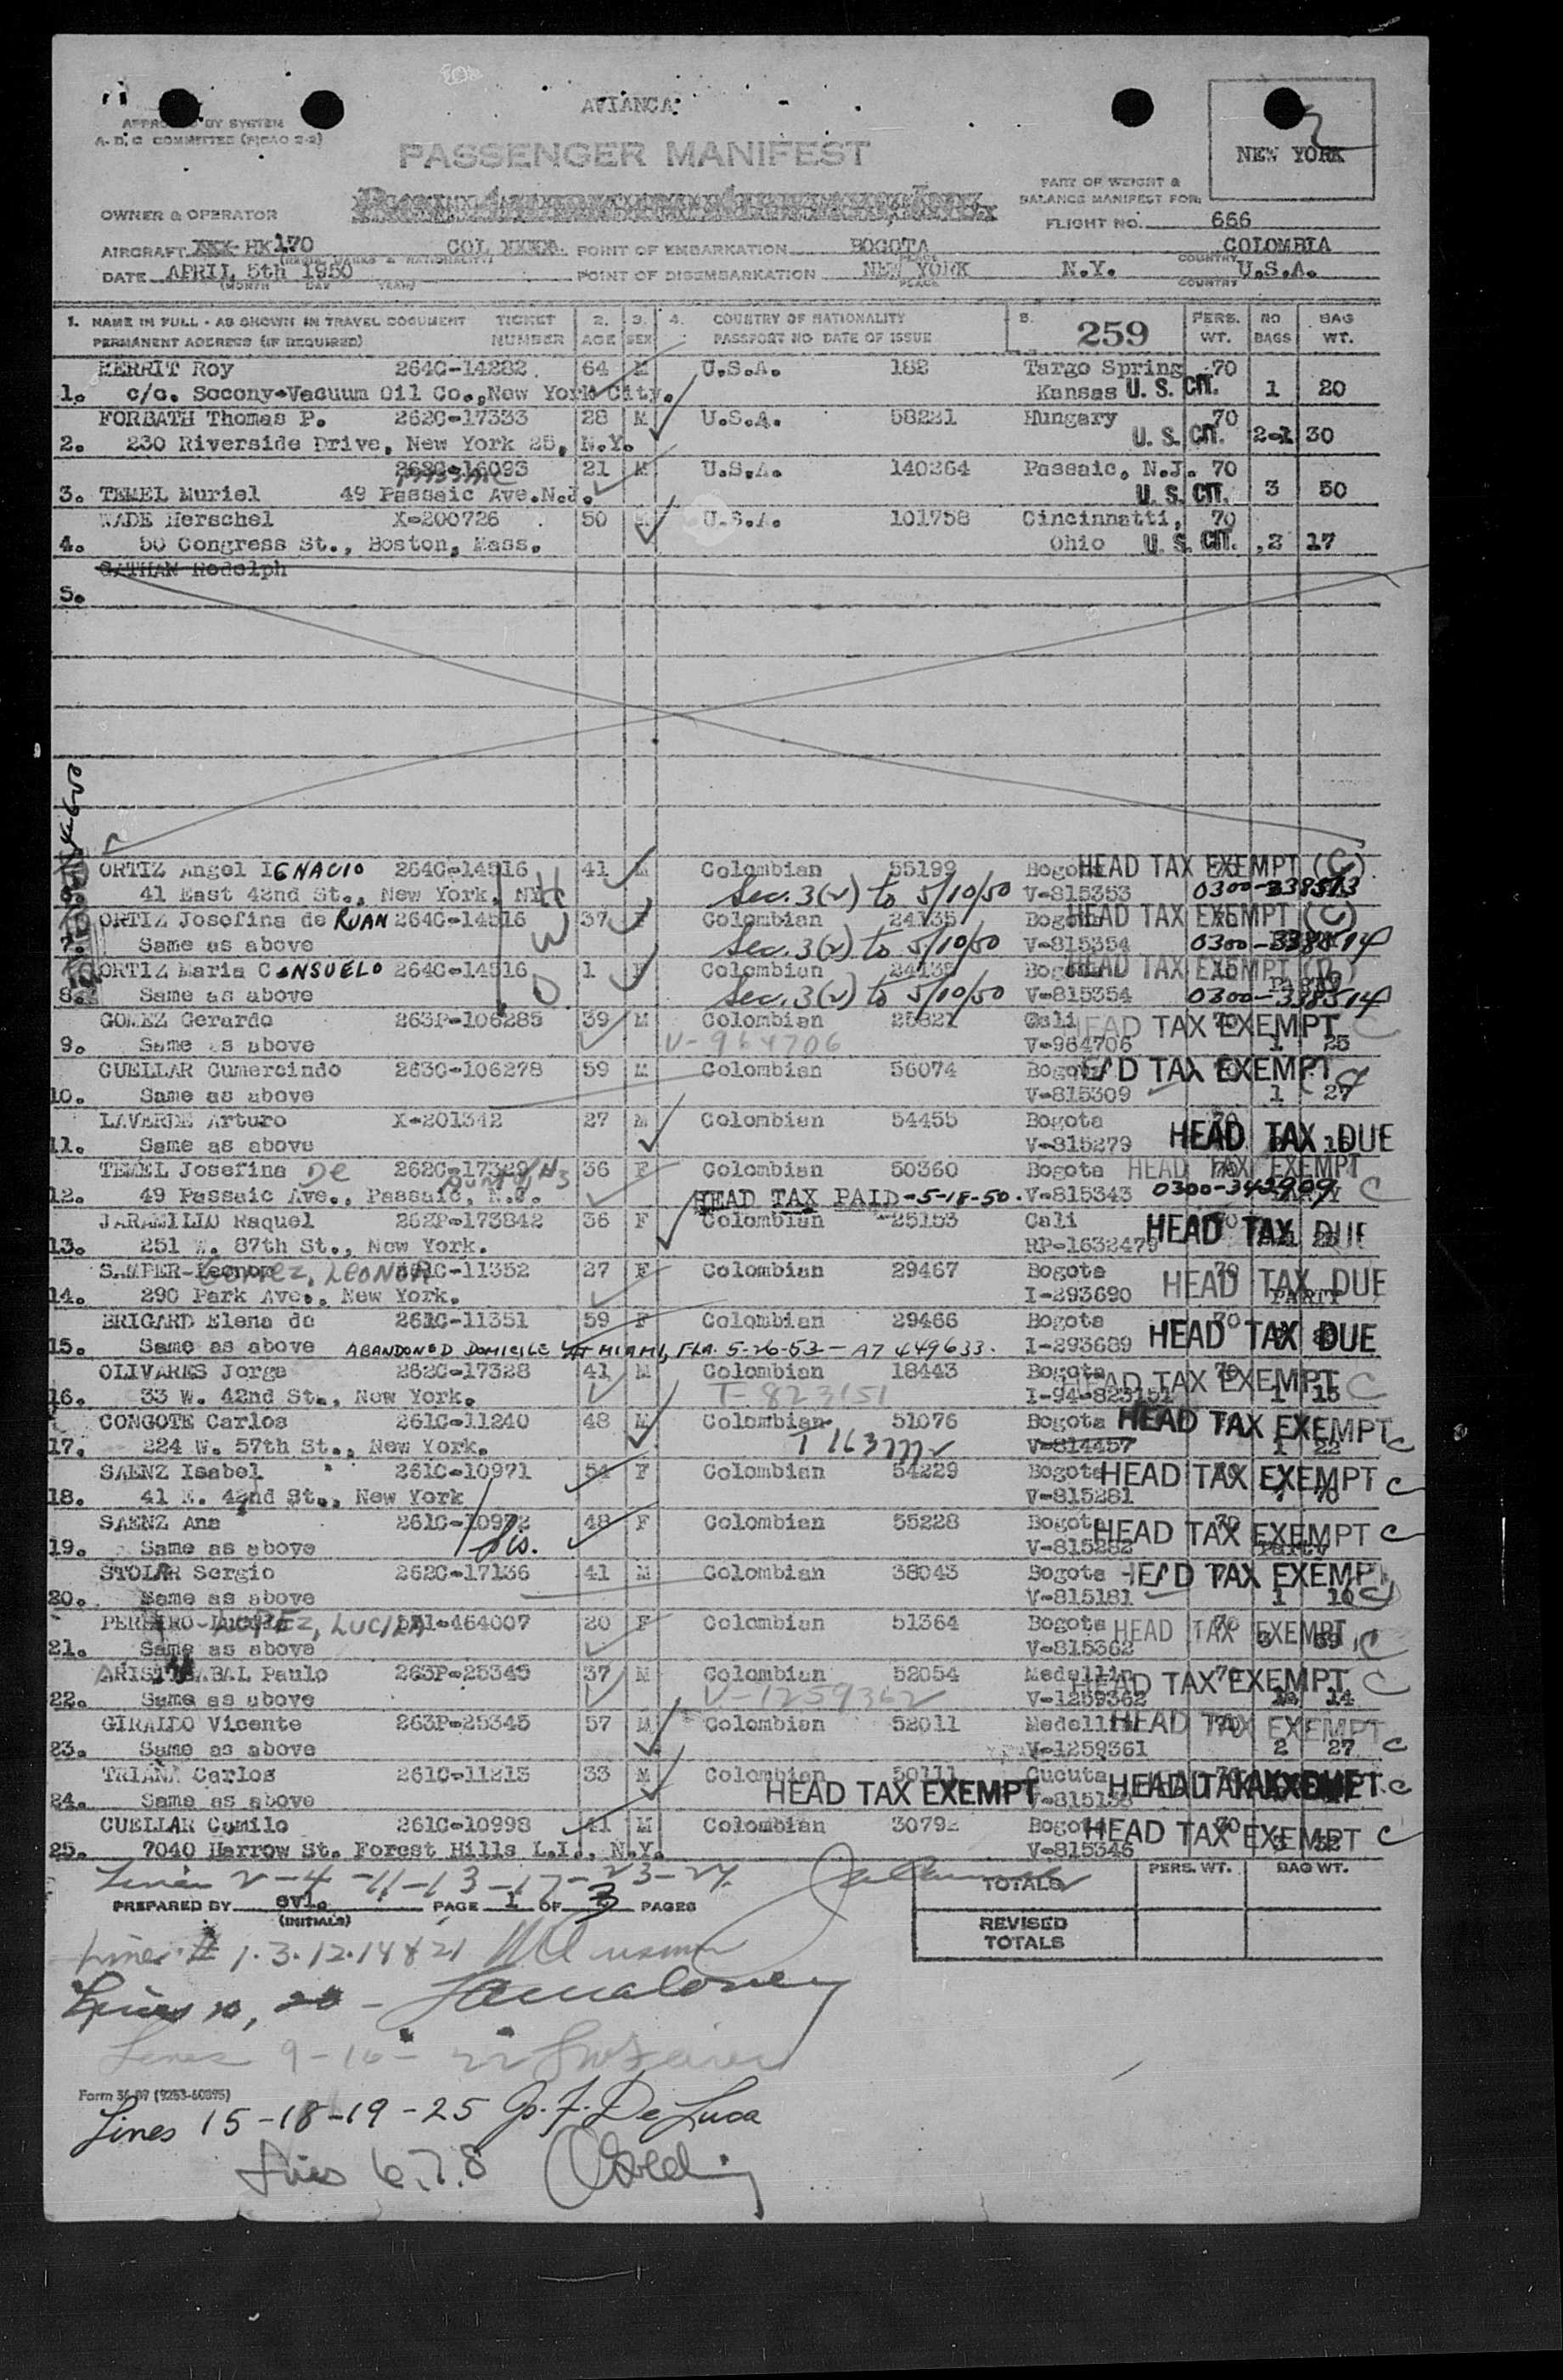 AVIANCA
APPROVED BY SYSTEM
A.D.C COMMITTEE (PICAO 2-2)
PASSENGER MANIFEST
NEW YORK
PART OF WEIGHT &
BALANCE MANIFEST FOR:
OWNER & OPERATOR
FLIGHT NO. 666
AIRCRAFT XXX HK170 COL XXXX POINT OF EMBARKATION BOGOTA COLOMBIA
DATE APRIL 5th 1950 POINT OF DISEMBARKATION NEW YORK N.Y. U.S.A.
(MONTH DAY YEAR) PLACE COUNTRY
1. NAME IN FULL - AS SHOWN IN TRAVEL DOCUMENT TICKET 2. 3. 4. COUNTRY OF NATIONALITY 5. 259 PERS. NO BAG
PERMANENT ADDRESS (IF REQUIRED) NUMBER AGE SEX PASSPORT NO DATE OF ISSUE WT. BAGS WT.
MERRIT Roy 264C-14282 64 M U.S.A. 182 Targo Spring 70
1. c/o. Socony-Vacuum Oil Co., New York City. Kansas U. S. CIT. 1 20
FORBATH Thomas P. 262C-17333 28 M U.S.A. 58221 Hungary 70
2. 230 Riverside Drive, New York 25, N.Y. U. S. CIT. 2-1 30
262C-16093 21 M U.S.A. 140264 Passaic, N.J. 70
3. TEMEL Muriel 49 Passaic Ave.N.J. U. S. CIT. 3 50
WADE Herschel X-200726 50 U.S.A. 101758 Cincinnatti, 70
4. 50 Congress St., Boston, Mass. Ohio U. S. CIT. 2 17
GATHAM Rodolph
5.
ORTIZ Angel IGNACIO 264C-14516 41 M Colombian 55199 Bogota HEAD TAX EXEMPT (C)
41 East 42nd St., New York, NY Sec. 3(2) to 5/10/50 V-815353 0300-338513
ORTIZ Josefina de RUAN 264C-14516 37 F Colombian 24135 Bogota HEAD TAX EXEMPT (C)
Same as above Sec. 3(2) to 5/10/50 V-815354 0300-338514
ORTIZ Maria CONSUELO 264C-14516 1 F Colombian 24135 Bogota HEAD TAX EXEMPT
8. Same as above Sec. 3(2) to 5/10/50 V-815354 0300-338514
GOMEZ Gerardo 263P-106285 39 M Colombian 25827 Cali HEAD TAX EXEMPT C
9. Same as above V-964706 V-964706 1 25
CUELLAR Gumercindo 263C-106278 59 M Colombian 56074 Bogota HEAD TAX EXEMPT
10. Same as above V-815309 1 27
LAVERDE Arturo X-201342 27 M Colombian 54455 Bogota 70
11. Same as above V-815279 HEAD TAX DUE
TEMEL Josefina De 262C-17329 36 F Colombian 50360 Bogota HEAD TAX EXEMPT
12. 49 Passaic Ave., Passaic, N.J. HEAD TAX PAID-5-18-50. V-815343 0300-342909 C
JARAMILLO Raquel 262P-173842 36 F Colombian 25153 Cali HEAD TAX DUE
13. 251 W. 87th St., New York. RP-1632479
SAMPER-GOMEZ, LEONOR 261C-11352 27 F Colombian 29467 Bogota 70 HEAD TAX DUE
14. 290 Park Ave., New York. I-293690 PARTY
BRIGARD Elena de 261C-11351 59 F Colombian 29466 Bogota 70 HEAD TAX DUE
15. Same as above ABANDONED DOMICILE AT MIAMI, FLA. 5-26-53 - A7 449633. I-293689
OLIVARES Jorge 262C-17328 41 M Colombian 18443 Bogota HEAD TAX EXEMPT C
16. 33 W. 42nd St., New York. T-823151 I-94-823151 1 15
CONGOTE Carlos 261C-11240 48 M Colombian 51076 Bogota HEAD TAX EXEMPT C
17. 224 W. 57th St., New York. V-814457 1 22
SAENZ Isabel 261C-10971 54 F Colombian 54229 Bogota HEAD TAX EXEMPT C
18. 41 E. 42nd St., New York V-815281 70
SAENZ Ana 261C-10972 48 F Colombian 55228 Bogota HEAD TAX EXEMPT C
19. Same as above V-815282 PARTY
STOLAR Sergio 262C-17136 41 M Colombian 38043 Bogota HEAD TAX EXEMPT
20. Same as above V-815181 1 16 C
PEREIRO-LOPEZ, LUCILA 571-464007 20 F Colombian 51364 Bogota HEAD TAX EXEMPT C
21. Same as above V-815362 59
ARISTIZABAL Paulo 263P-25345 37 M Colombian 52054 Medellin HEAD TAX EXEMPT C
22. Same as above V-1259362 V-1259362 14
GIRALDO Vicente 263P-25345 57 M Colombian 52011 Medellin HEAD TAX EXEMPT
23. Same as above V-1259361 2 27 C
TRIANA Carlos 261C-11213 33 M Colombian 50111 Cucuta
24. Same as above HEAD TAX EXEMPT C
CUELLAR Camilo 261C-10998 41 M Colombian 30792 Bogota HEAD TAX EXEMPT C
25. 7040 Harrow St. Forest Hills L.I., N.Y. V-815346 32
Lines 2-4-11-13-17-23-24
PREPARED BY svl. PAGE 1 OF 3 PAGES
(INITIALS)
PERS. WT. BAG WT.
TOTALS
REVISED
TOTALS
Lines # 1.3.12.14 & 21
Lines 10, 20 -
Lines 9-16-22
Form 36-87 (9253-60895)
Lines 15-18-19-25 G. F. De Luca
Lines 6.7.8